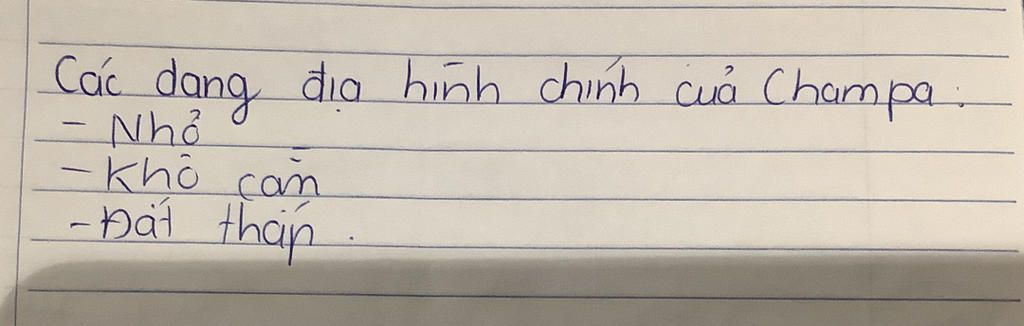 Các dạng địa hình chính của Champa:
- Nhỏ
- Khô cằn
- Đất thấp.